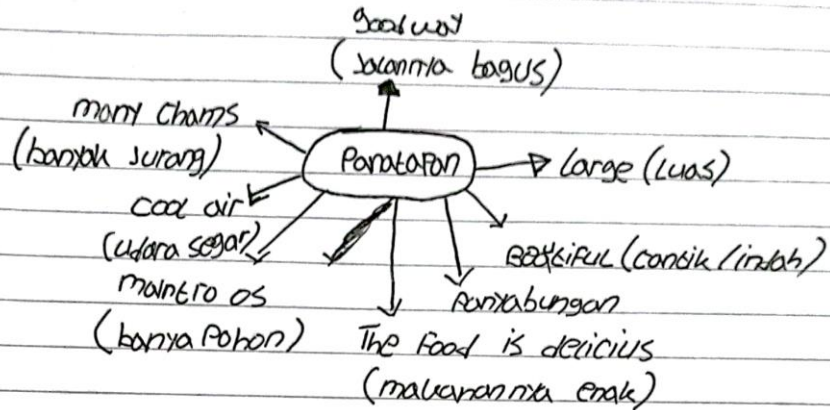 good way
(Jalannya bagus)
many Chams
(banyak Jurang)
Panatapan
Large (Luas)
cool air
(udara segar)
Beautiful (cantik / indah)
mantro os
(banya Pohon)
Panyabungan
The Food is delicius
(makanannya enak)